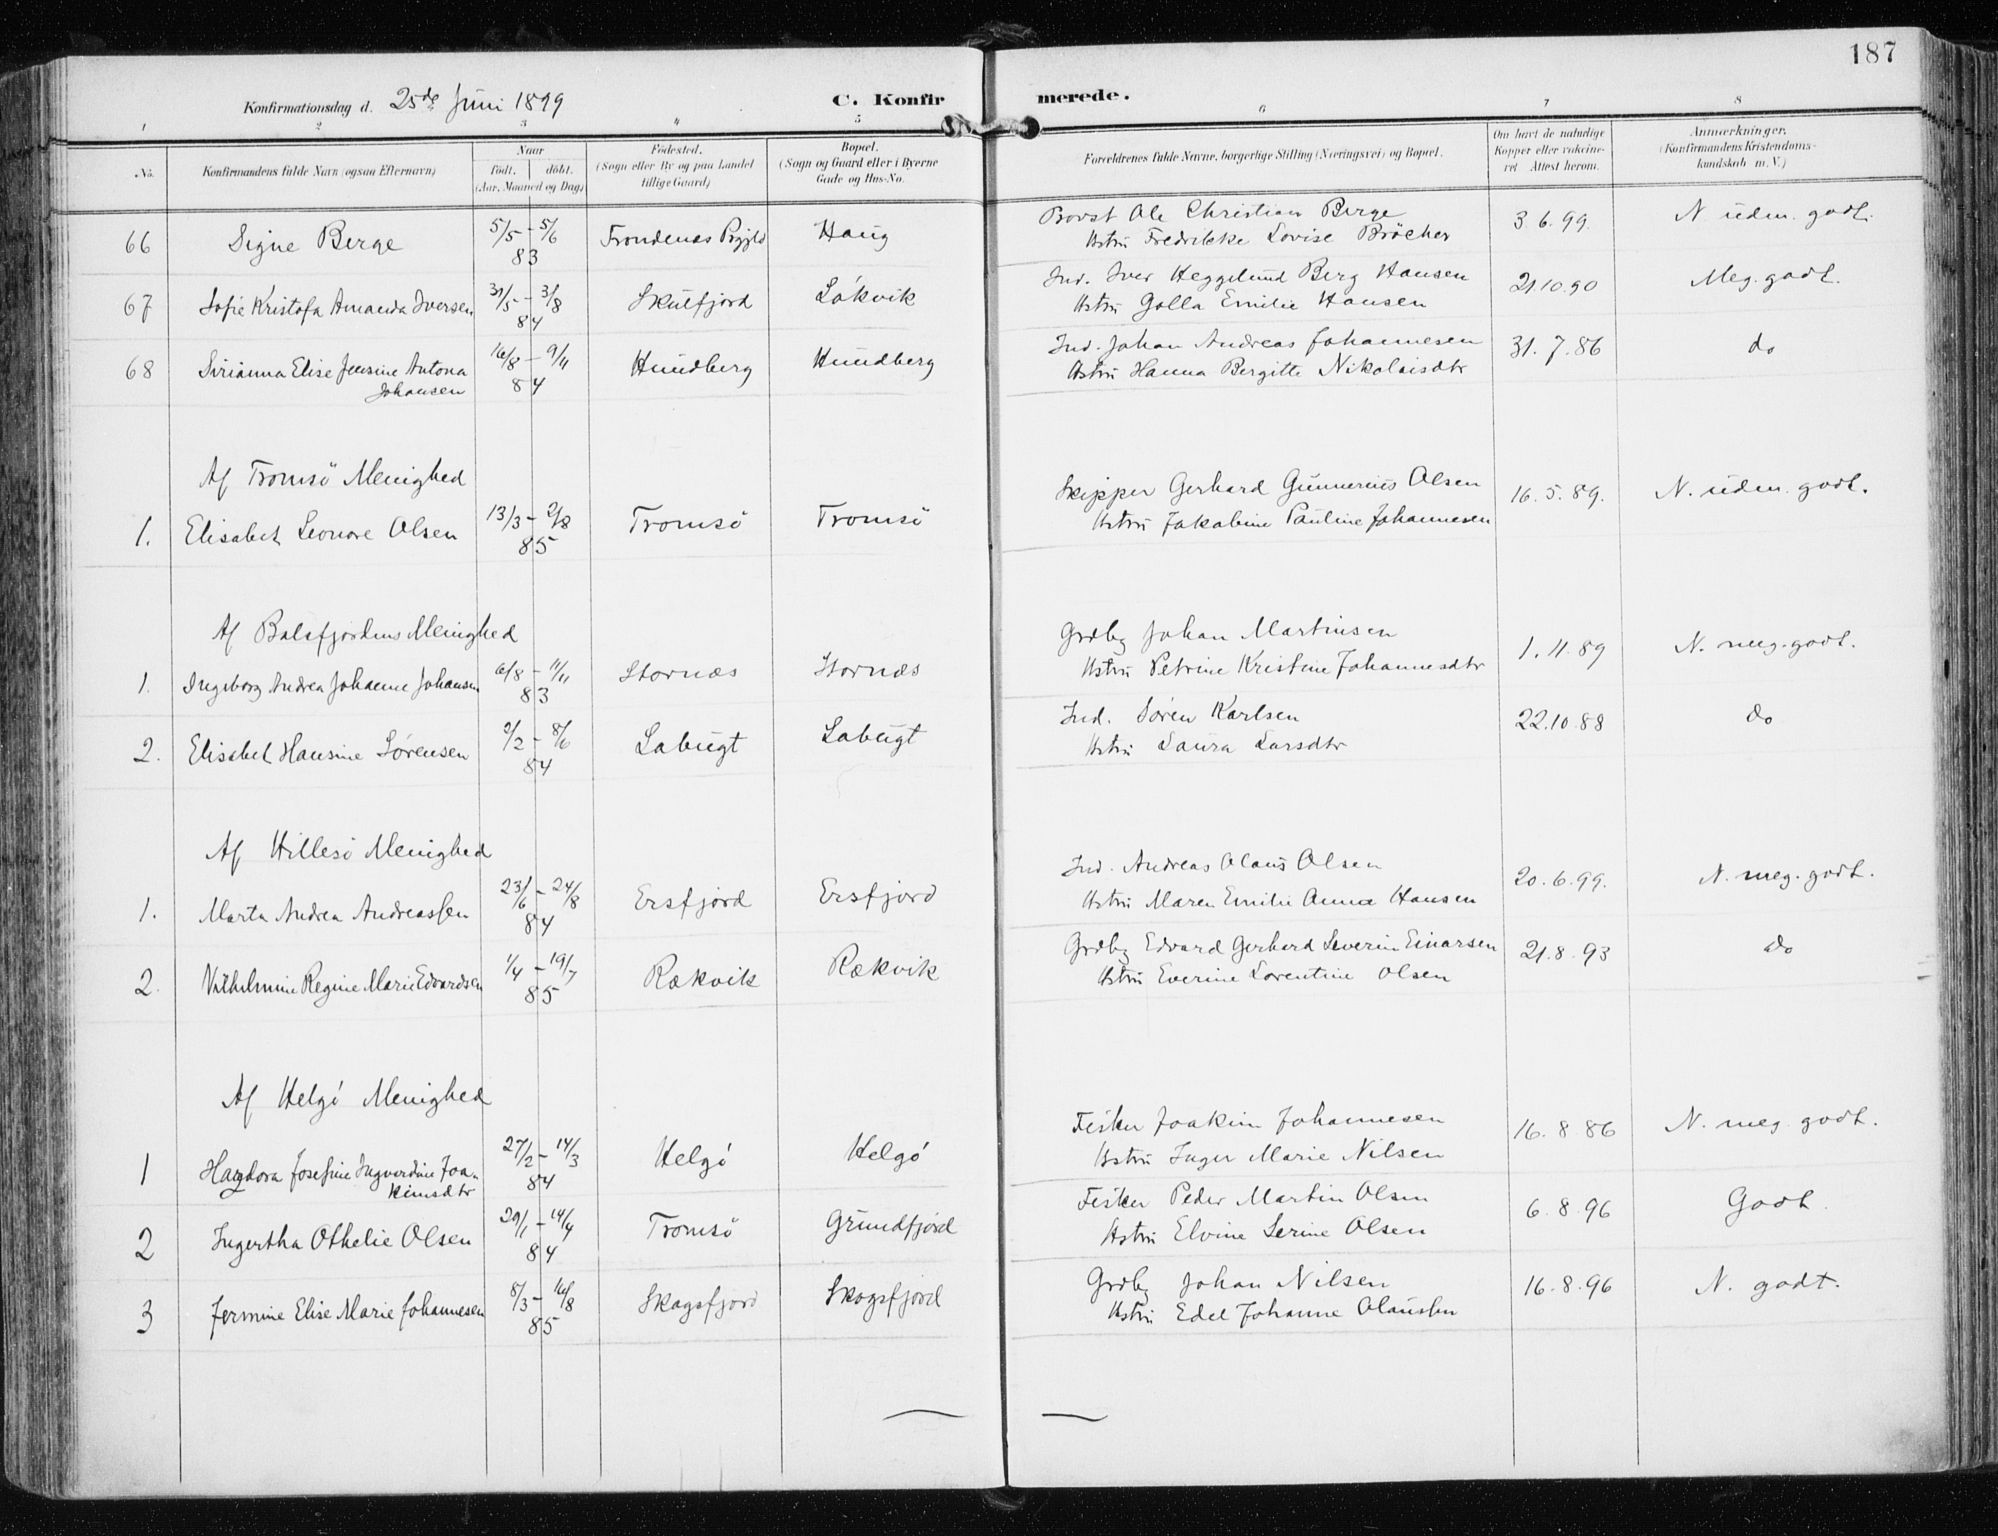 187
Konfirmationsdag d. 25de Juni 1899
C. Konfir merede.
1 2 3 4 5 6 7 8
No.
Konfirmandens fulde Navn (ogsaa Efternavn)
Naar
født. døbt.
(Aar, Maaned og Dag)
Fødested.
(Sogn eller By og paa Landet
tillige Gaard)
Bopæl.
(Sogn og Gaard eller i Byerne
Gade og Hus-No.
Forældrenes fulde Navne, borgerlige Stilling (Næringsvei) og Bopæl.
Om havt de naturlige
Kopper eller vaccine-
ret Attest herom.
Anmærkninger.
(Konfirmandens Kristendoms-
kundskab m. V.)
66 Signe Berge 5/5 - 5/6 83 Trondenæs Haug
Provst Ole Christian Berge
Hstru Fredrikke Lovise Bröcher
3.6.99. N udm. godt.
67 Sofie Kristofa Amanda Iversen 31/5 - 3/8 84 Skulfjord Lakvik
Ind. Iver Heggelund Berg Hansen
Hstru Golla Emilie Hansen
21.10.90 Meg. godt.
68 Sirianna Elise Jensine Antona
Johansen
16/8 - 9/11 84 Hundberg Hundberg
Ind. Johan Andreas Johannesen
Hstru Hanna Bergitte Nikolaisdtr
31.7.86 do
Af Tromsö Menighed
1. Elisabet Leonore Olsen 13/3 - 2/8 85 Tromsö Tromsö
Skipper Gerhard Gunnerius Olsen
Hstru Jakobine Pauline Johannesen
16.5.89. N. udm. godt.
Af Balsfjordens Menighed
1. Ingeborg Andrea Johanne Johansen 6/8 - 11/11 83 Stornæs Stornæs
Grdbr Johan Martinsen
Hstru Petrine Kristine Johannesdtr
1.11.89 N. meg. godt.
2. Elisabet Hansine Sørensen 2/2 - 8/6 84 Labugt Labugt
Ind. Søren Karlsen
Hstru Laura Larsdtr
22.10.88 do
Af Hillesö Menighed
1. Marta Andrea Andreassen 23/6 - 24/8 84 Ersfjord Ersfjord
Ind. Andreas Olaus Olsen
Hstru Maren Emilie Anna Hansen
20.6.99. N. meg. godt.
2. Vilhelmine Regine Marie Edvardsen 1/4 - 19/7 85 Rækvik Rækvik
Grdbr Edvard Gerhard Severin Einarsen
Hstru Everine Lorentine Olsen
21.8.93 do
Af Helgö Menighed
1 Hagdora Josefine Ingvardine Joa-
kimsdtr
27/2 - 14/3 84 Helgö Helgö
Fisker Joakim Johannesen
Hstru Inger Marie Nilsen
16.8 86 N. meg. godt.
2 Ingertha Othelie Olsen 29/1 - 14/4 84 Tromsö Grundfjord
Fisker Peder Martin Olsen
Hstru Elvine Serine Olsen
6.8.96 Godt.
3 Jermine Elise Marie Johannesen 8/3 - 16/8 85 Skogsfjord Skogsfjord
Grdbr Johan Nilsen
Hstru Edel Johanne Olaussen
16.8.96 N. godt.